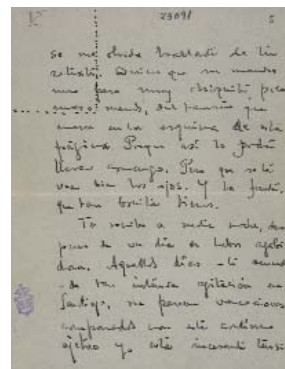 23091 5
se me olvida hablarte de tu
retrato. Quiero que me mandes
uno pero muy chiquito, pre
mente, del tamaño que
marco en la esquina de esta
página. Porque así lo podré
llevar conmigo. Pero que se te
vean bien los ojos. Y la frente,
que tan bonita tienes.
Te escribo a media noche, des
pues de un día de labor agota
dora. Aquellos días - te acuerdas
- de tan intensa agitación en
Santiago, me parecen vacaciones
comparados con este continuo
ajetreo y esta incesante tensi